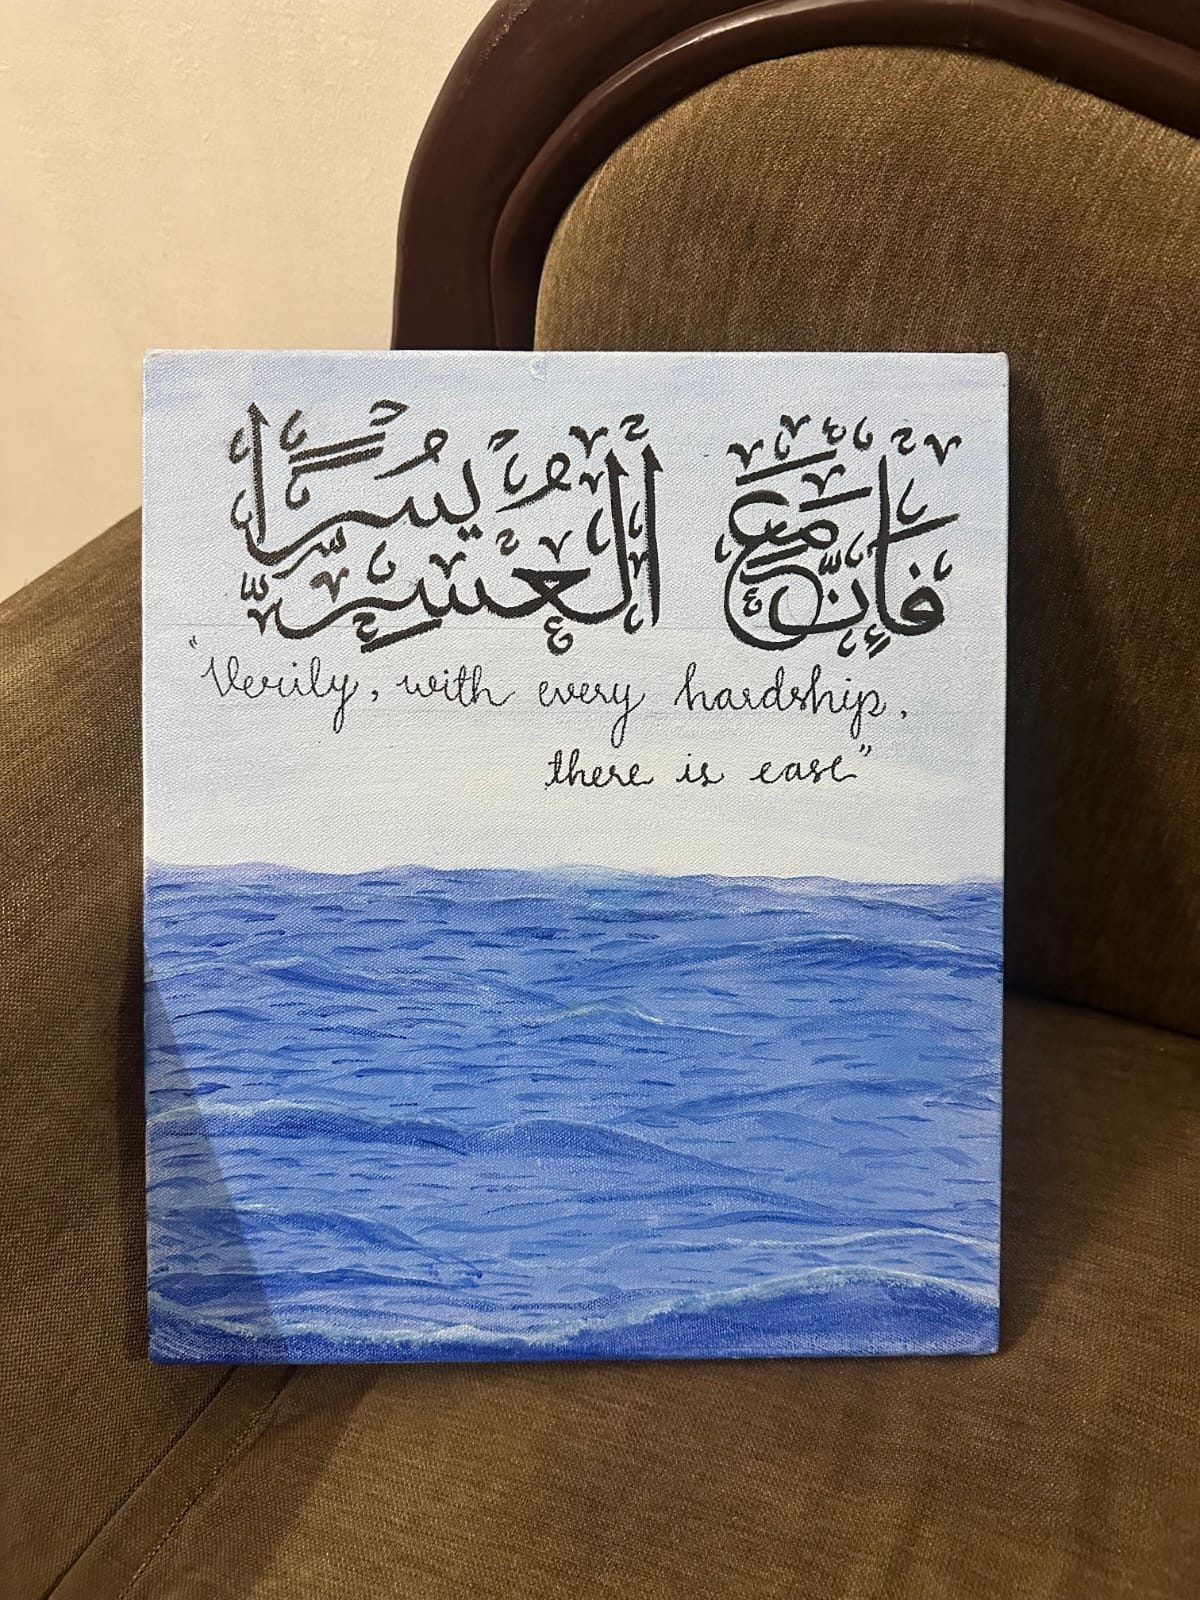 فَإِنَّ مَعَ الْعُسْرِ يُسْرًا
"Verily, with every hardship,
there is ease"